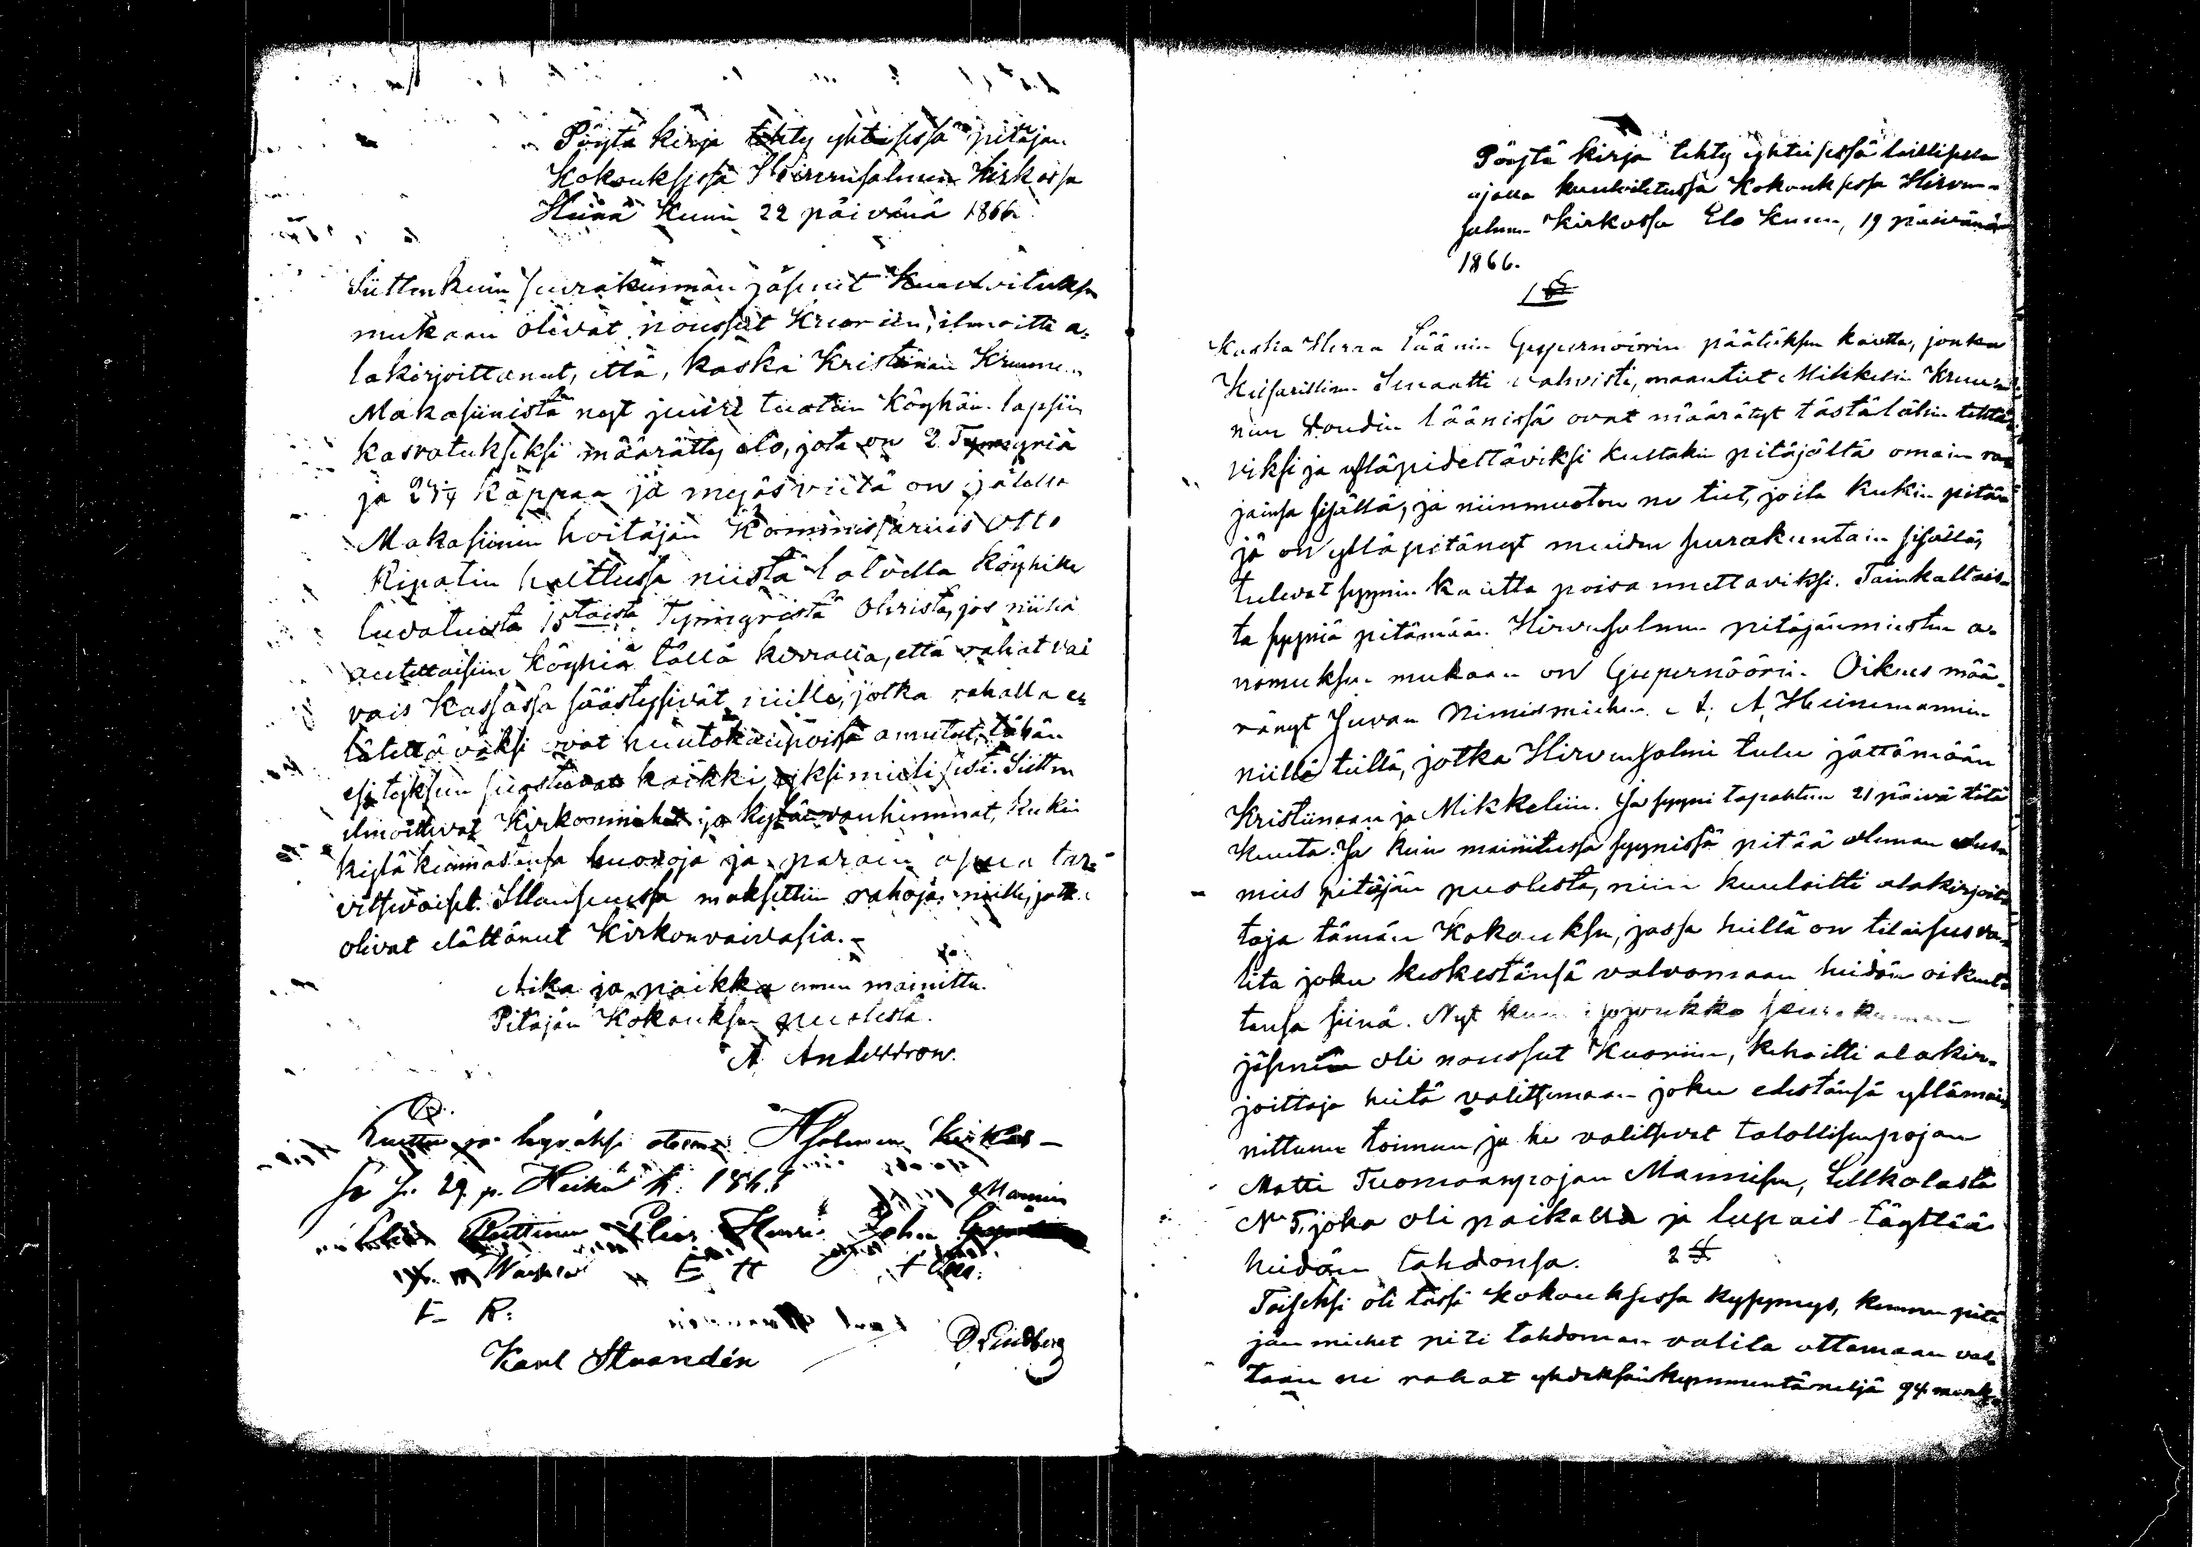 Pöytä kirja tehty yhteisessä pitäjän
Kokouksessa Hirvensalmen Kirkossa
Heinä Kuun 22 päivänä 1866.
Sittenkuin seurakunnan jäsenet Kuuloituksen
mukaan olivat nousseet Kuoriin, ilmoitti a-
lakirjoittanut, että, koska Kristiinan Kruunun
Makasiinista nyt juuri tuotiin Köyhäin lapsiin
kasvatukseksi määrätty elo, jota on 2 Tynnyriä
ja 24 1/4 kappaa ja myös viitä on jälellä
Makasiinin hoitajan Kommissarius Otto
Ripatin hallussa niistä talvella köyhille
luvatuista 15taista Tynnyristä Ohrista, jos niillä
autettaisiin Köyhiä tällä kerralla, että rahat vai
vais Kassassa säästyisivät niille, jotka rahalla e-
lätettäväksi ovat huutokaupoissa annetut, tähän
esityksen suostuivat kaikki yksimielisesti. Sitten
ilmoittivat Kirkonmiehet ja kylän vanhimmat, kukin
kyläkunnastansa huonoja ja parain apua tar-
vitsevaiset. Illansuussa maksettiin rahoja niille, jotka
olivat elättäneet Kirkonvaivasia.-
Aika ja paikka ennen mainittu.
Pitäjän Kokouksen puolesta.
A Andersson.
ja hyväksi otettu Hsalmen Kirkos-
sa s. 29 p. Heinä k. 1866
Manninen
Ruttinen Elias Henri Johan
E H
E R:
Karl Strandén
D Lindberg
Pöytä kirja tehty yhteisessä laillisella
ajalla kuuloitetussa Kokouksessa Hirven-
salmen Kirkossa Elo Kuun, 19 päivänä
1866.
1 §
Koska Herra Läänin Gupernöörin päätöksen kautta, jonka
Keisarillinen Senaatti vahvisti, maantiet Mikkelin Kruu
nun Voudin läänissä ovat määrätyt tästälähin tehtä
viksi ja ylläpidettäviksi kultakin pitäjältä omain ra
jainsa sisällä, ja niinmuoton ne tiet, joita kukin pitä
jä on ylläpitänyt muiden seurakuntain sisällä,
tulevat syynin kautta poisannettaviksi. Tainkaltais-
ta syyniä pitämään Hirvensalmen pitäjänmiesten a-
nomuksen mukaan on Gupernöörin Oikeus mää-
rännyt Juvan Nimismiehen A. A. Heinemannin
niillä teillä, jotka Hirvensalmi tulee jättämään
Kristiinaan ja Mikkeliin. Ja syyni tapahtuu 21 päivä tätä
Kuuta. Ja kuin mainitussa syynissä pitää oleman edus
mies pitäjän puolesta, niin kuuloitti alakirjoit
taja tämän Kokouksen, jossa heillä on tilaisuus va
lita joku keskestänsä valvomaan heidän oikeut
tansa siinä. Nyt kuin isojoukko seurakunnan
jäseniä oli noussut Kuoriin, kehoitti alakir-
joittaja heitä valitsemaan joku edestänsä yllämai
nittuun toimeen ja he valitsivat talollisenpojan
Matti Tuomaanpojan Mannisen, Lelkolasta
No 5, joka oli paikalla ja lupais täyttää
heidän tahdonsa.
2 §
Toiseksi oli tässä kokouksessa kysymys, kumen pitä
jän miehet piti tahdomaan valita ottamaan vas
taan ne rahat yhdeksänkymmentäneljä 94 mark-